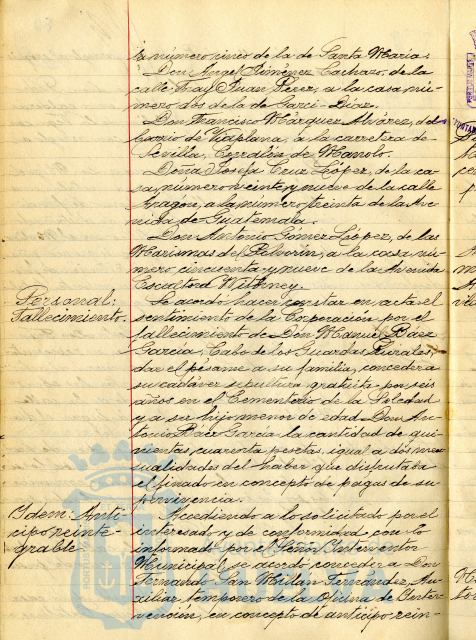 sa número cinco de la de Santa María.
Don Angel Jiménez Cachazo, de la
calle Fray Juan Pérez, a la casa nú-
mero dos de la de Garci-Díaz.
Don Francisco Márquez Alvárez, del
barrio de Viaplana, a la carretera de
Sevilla, Corralón de Manolo.
Doña Josefa Cruz López, de la ca-
sa, número veinte y nueve de la calle
Aragón, a la número treinta de la Ave-
nida de Guatemala.
Don Antonio Gómez López, de las
Marismas del Polvorín, a la casa, nú-
mero cincuenta y nueve de la Avenida
Escultora Witkney.
Personal:
Fallecimiento.
Se acordó hacer constar en acta el
sentimiento de la Corporación por el
fallecimiento de Don Manuel Báez
García, Cabo de los Guardas Rurales,
dar el pésame a su familia, conceder a
su cadáver sepultura gratuita por seis
años en el Cementerio de la Soledad
y a su hijo menor de edad Don An-
tonio Báez García la cantidad de qui-
nientas cuarenta pesetas, igual a dos men-
sualidades del haber que disfrutaba
el finado en concepto de pagas de su-
pervivencia.
Idem: Anti-
cipo reinte-
grable
Accediendo a lo solicitado por el
interesado y de conformidad con lo
informado por el Señor Interventor
Municipal se acordó conceder a Don
Fernando San Millán Fernández, Au-
xiliar temporero de la Oficina de Inter-
vención, en concepto de anticipo rein-